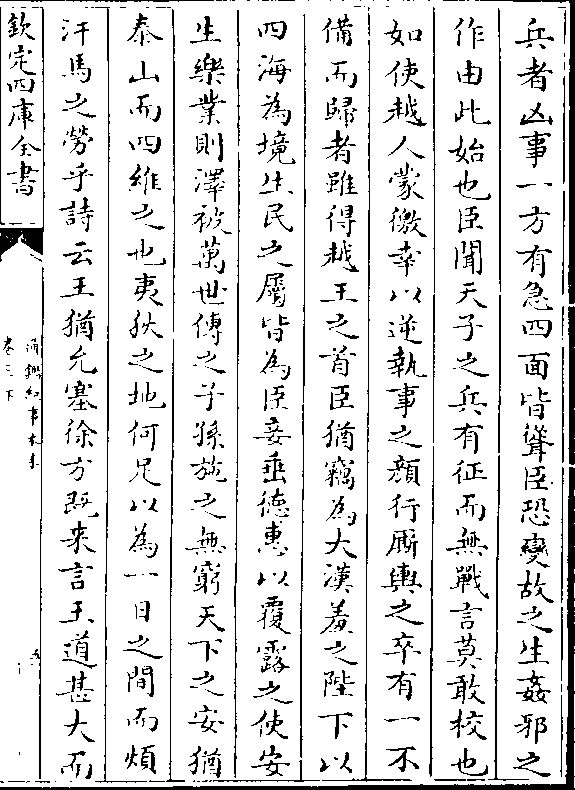 兵者凶事一方有急四面皆聳臣恐變故之生姦邪之
作由此始也臣聞天子之兵有征而無戰言莫敢校也
如使越人蒙徼幸以逆執事之顔行厮輿之卒有一不
備而歸者雖得越王之首臣猶竊為大漢羞之陛下以
四海為境生民之屬皆為臣妾垂德惠以覆露之使安
生樂業則澤被萬世傳之子孫施之無窮天下之安猶
泰山而四維之也夷狄之地何足以為一日之間而煩
汗馬之勞乎詩云王猶允塞徐方既来言王道甚大而
欽定四庫全書
通鑑紀事本末
卷三下
五